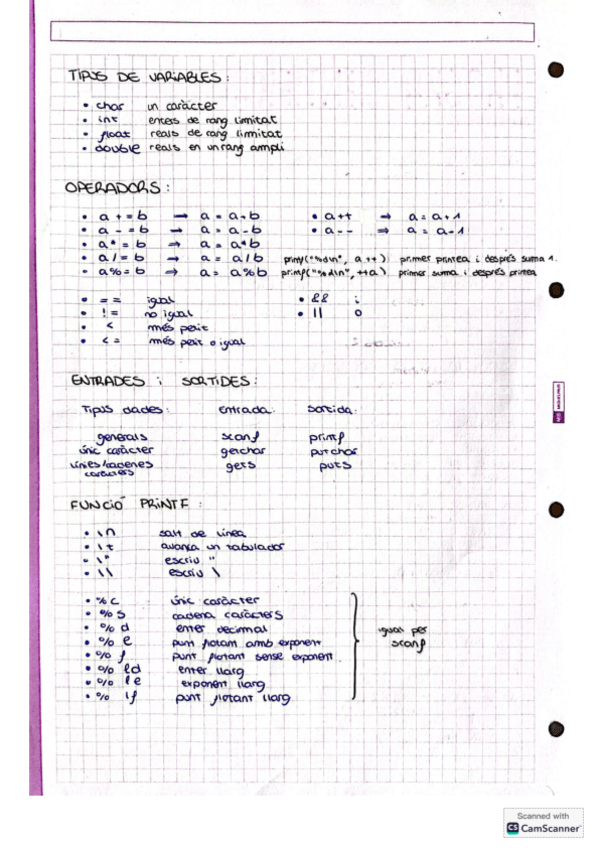 TIPUS DE VARIABLES:
• char un caràcter
• int enters de rang limitat
• float reals de rang limitat
• double reals en un rang ampli
OPERADORS:
• a += b → a = a+b • a++ → a = a+1
• a -= b → a = a-b • a-- ⇒ a = a-1
• a*=b ⇒ a = a*b
• a/=b → a = a/b printf("%d\n", a++) primer printea i després suma 1.
• a%=b → a = a%b printf("%d\n", ++a) primer suma i després printea
• == igual • && i
• != no igual • || o
• < més petit
• <= més petit o igual
ENTRADES i SORTIDES:
Tipus dades: Entrada: Sortida:
generals scanf printf
únic caràcter getchar putchar
línies/cadenes caràcters gets puts
FUNCIÓ PRINTF:
• \n salt de línea
• \t avança un tabulador
• \" escriu "
• \\ escriu \
• %c únic caràcter
• %s cadena caràcters
• %d enter decimal
• %e punt flotant amb exponent
• %f punt flotant sense exponent.
• %ld enter llarg
• %le exponent llarg
• %lf punt flotant llarg
igual per
scanf
Scanned with
CS CamScanner